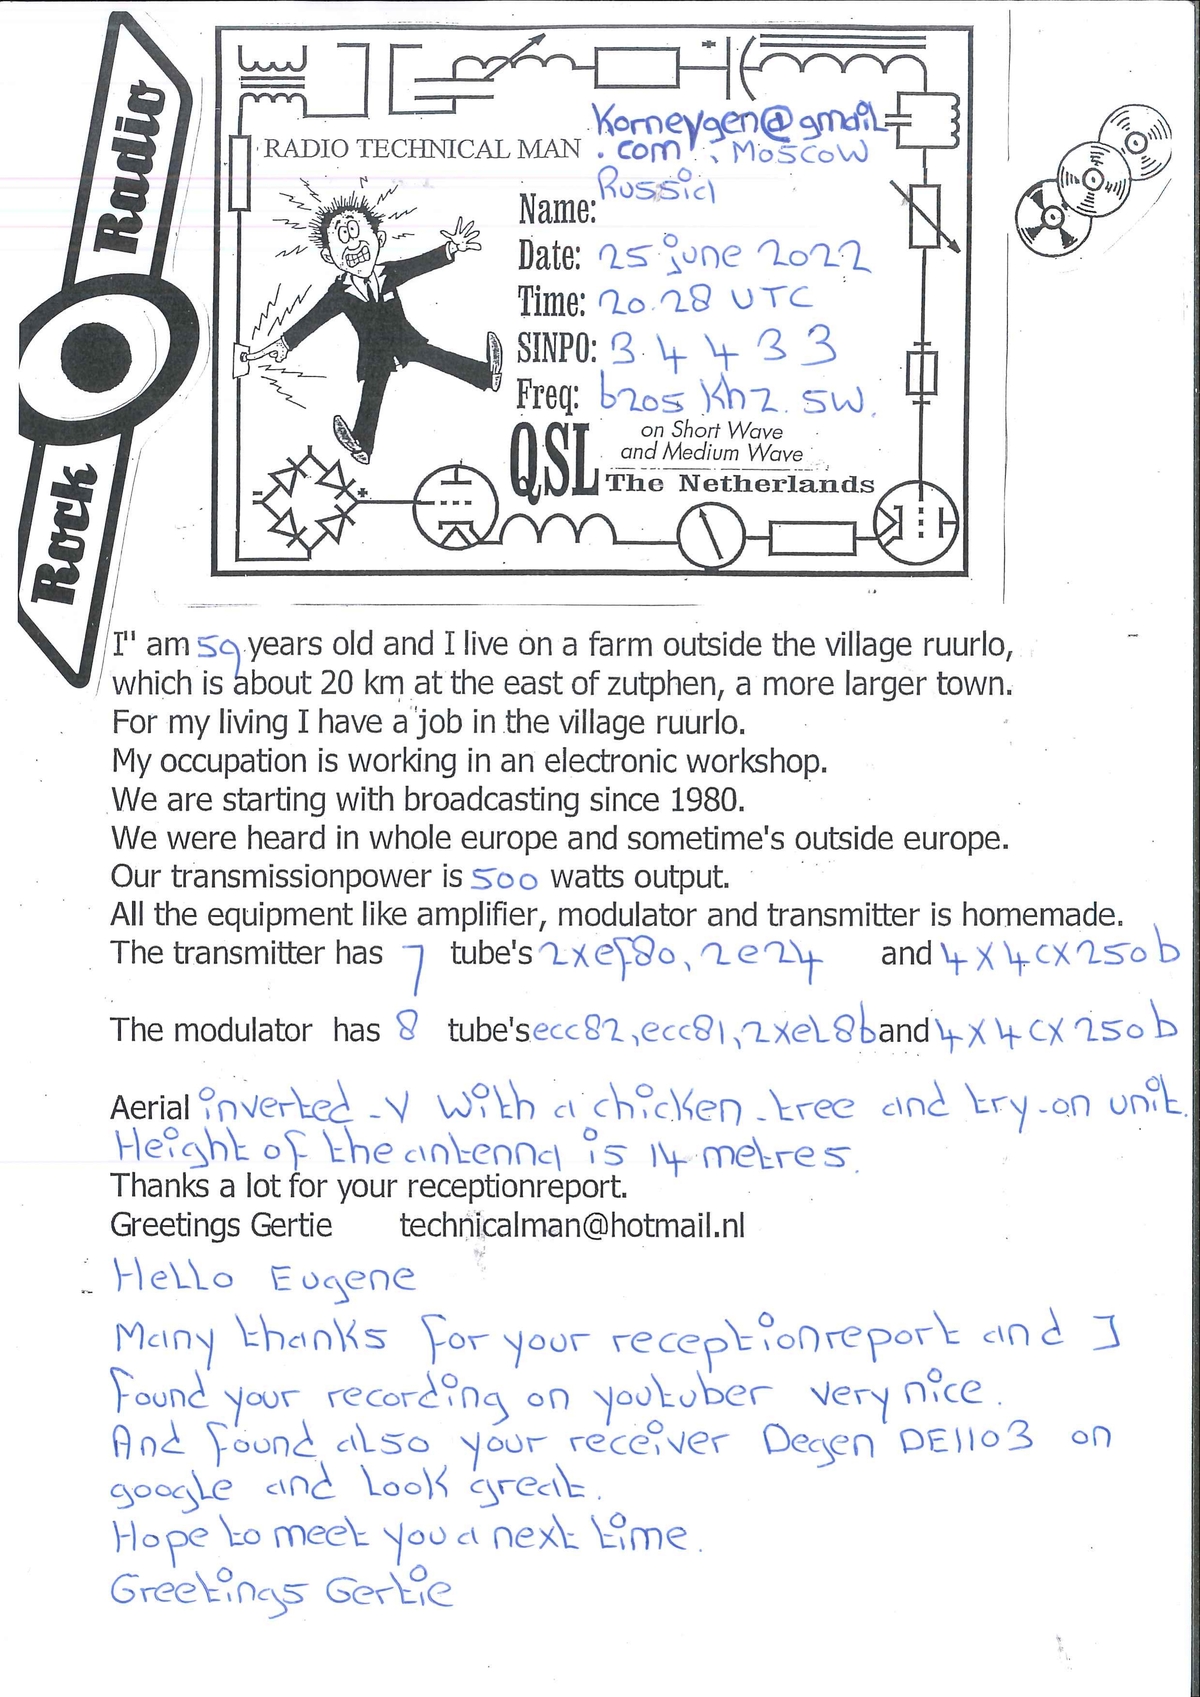 Rock Radio
RADIO TECHNICAL MAN
Korneygen@gmail
.com, Moscow
Russia
Name:
Date: 25 june 2022
Time: 20.28 UTC
SINPO: 3.4 4 3 3
Freq: 6205 Khz. SW.
QSL
on Short Wave
and Medium Wave
The Netherlands
I" am 59 years old and I live on a farm outside the village ruurlo,
which is about 20 km at the east of zutphen, a more larger town.
For my living I have a job in the village ruurlo.
My occupation is working in an electronic workshop.
We are starting with broadcasting since 1980.
We were heard in whole europe and sometime's outside europe.
Our transmissionpower is 500 watts output.
All the equipment like amplifier, modulator and transmitter is homemade.
The transmitter has 7 tube's 2xef80, 2e24 and 4X4CX250b
The modulator has 8 tube's ecc82, ecc81, 2xeL86 and 4X4CX250b
Aerial inverted-V with a chicken-tree and try-on unit.
Height of the antenna is 14 metres.
Thanks a lot for your receptionreport.
Greetings Gertie technicalman@hotmail.nl
Hello Eugene
Many thanks for your receptionreport and I
found your recording on youtuber very nice.
And found also your receiver Degen DE1103 on
google and look great.
Hope to meet you a next time.
Greetings Gertie